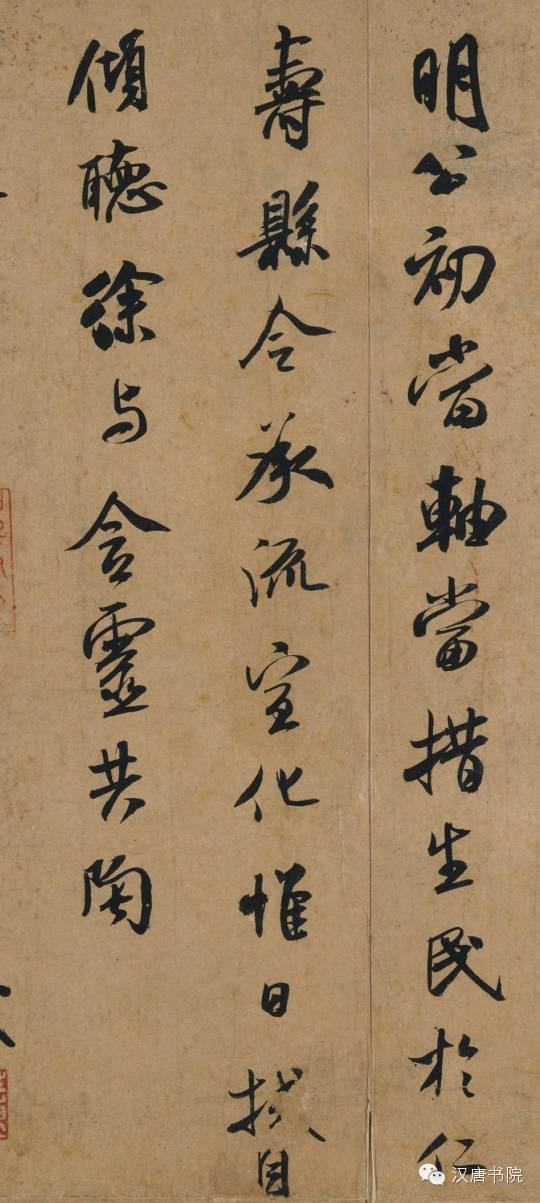 明公初當軸當措生民於仁
壽縣令承流宣化惟日拭目
傾聽徐与含靈共陶
汉唐书院